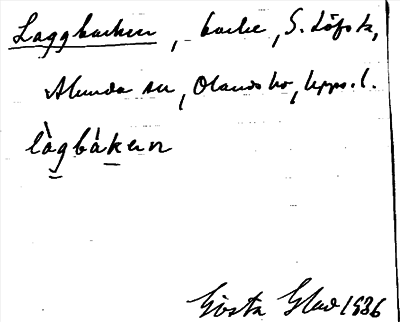 Laggbacken, backe, S. Löfsta,
Alunda sn, Olands hd, Upps. l.
làgbàken
Gösta Glad 1936